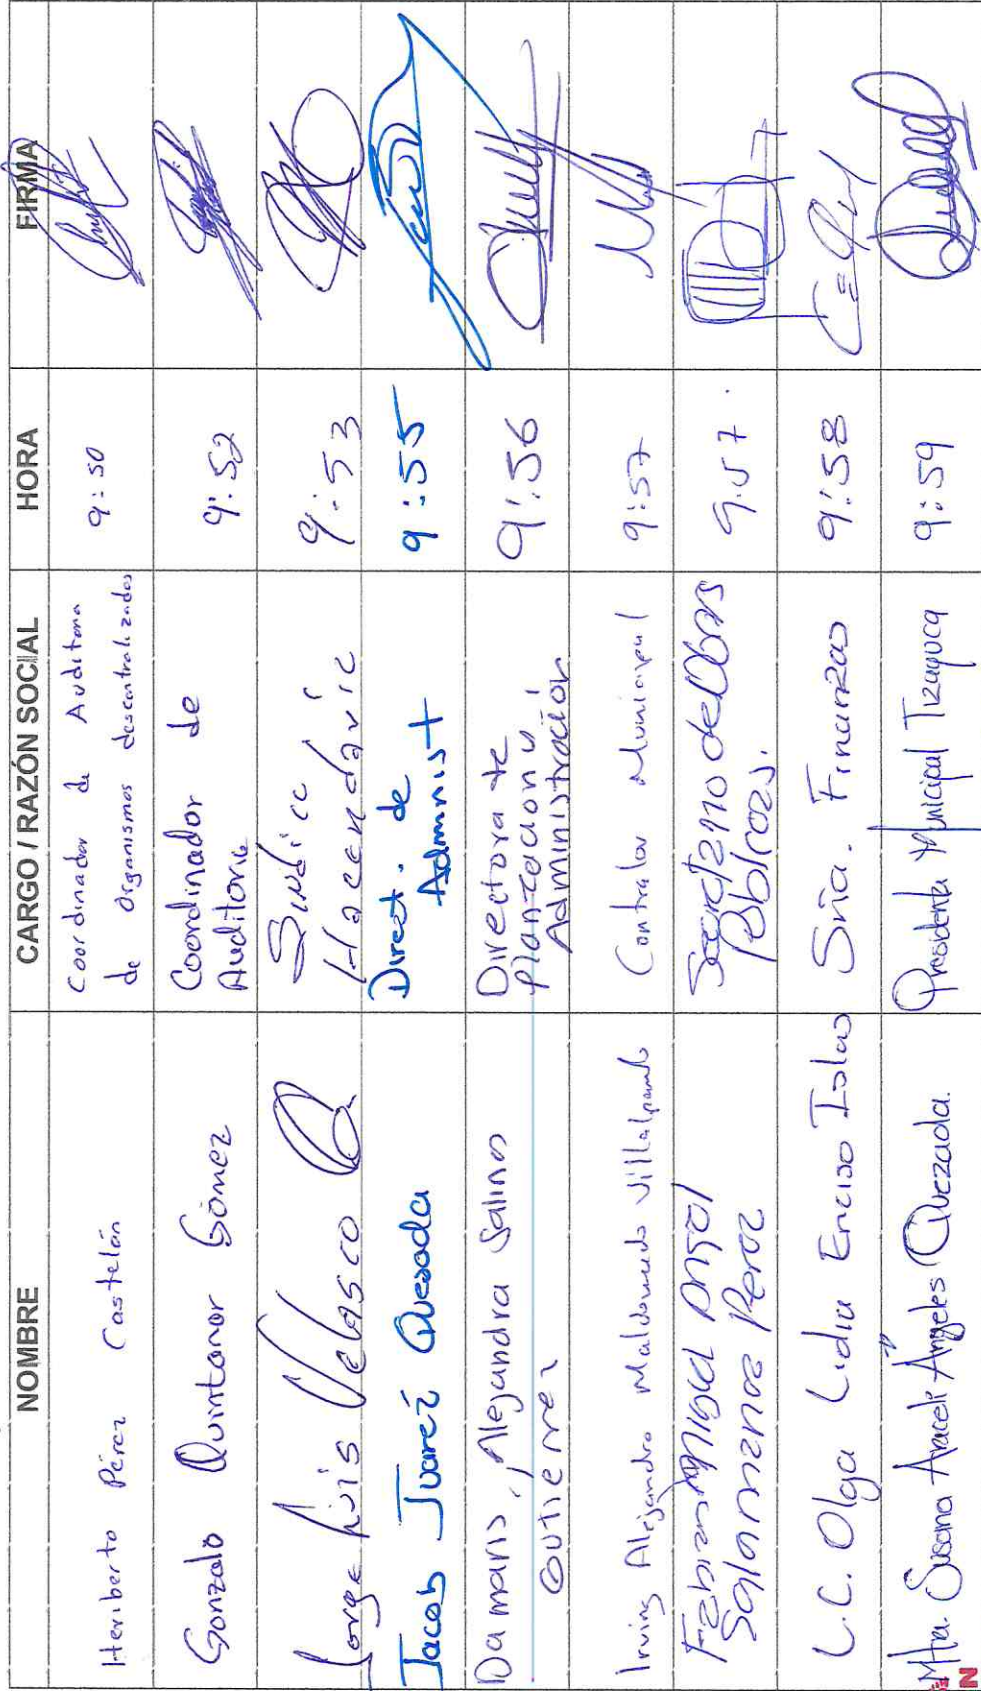 NOMBRE CARGO / RAZÓN SOCIAL HORA FIRMA
Heriberto Pérez Castelán Coordinador de Auditoria 9:50
de Organismos descentralizados
Gonzalo Quintanar Gómez Coordinador de 9:52
Auditoria
Jorge Luis Velasco Sindico 9:53
Hacendario
Jacob Juaréz Quesada Direct. de 9:55
Administ
Damaris Alejandra Salinas Directora de 9:56
Gutierrez Planeación y
Administración
Irving Alejandro Maldonado Villalpando Contralor Municipal 9:57
Fabian Miguel Angel Secretario de Obras 9:57
Salamanca Perez Públicas.
L.C. Olga Lidia Enciso Islas Sria. Finanzas 9:58
Mtra. Susana Araceli Ángeles Quezada. Presidenta Municipal Tizayuca 9:59
N